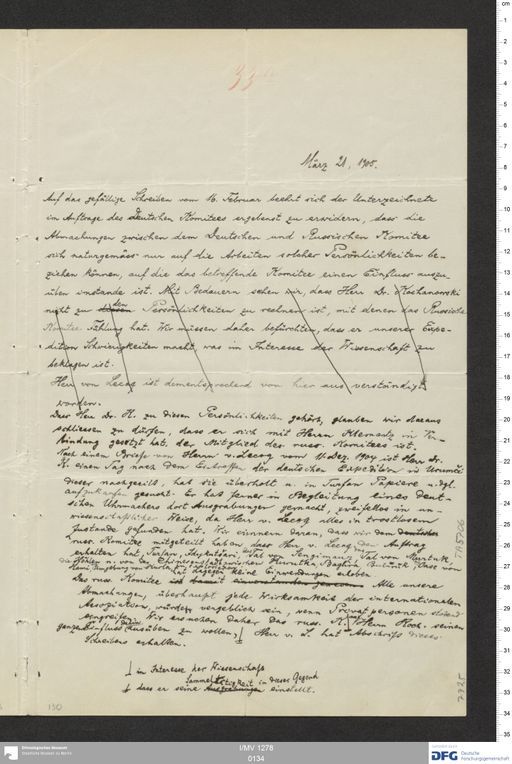 März 21, 1905.
Auf das gefällige Schreiben vom 16. Februar beehrt sich der Unterzeichnete
im Auftrage des Deutschen Komitees ergebenst zu erwidern, dass die
Abmachungen zwischen dem Deutschen und Russischen Komitee
sich naturgemäss nur auf die Arbeiten solcher Persönlichkeiten be-
ziehen können, auf die das betreffende Komitee einen Einfluss auszu-
üben imstande ist. Mit Bedauern sehen wir, dass Herr Dr. Kochanowski
nicht zu den Persönlichkeiten zu rechnen ist, mit denen das Russische
Komitee Fühlung hat. Wir müssen daher befürchten, dass er unserer Expe-
dition Schwierigkeiten macht, was im Interesse der Wissenschaft zu
beklagen ist.
Herr von Lecoq ist dementsprechend von hier aus verständigt
worden.
Dass Herr Dr. K. zu diesen Persönlichkeiten gehört, glauben wir daraus
schliessen zu dürfen, dass er sich mit Herrn Klementz in Ver-
bindung gesetzt hat, der Mitglied des russ. Komitees ist.
Nach einem Briefe von Herrn v. Lecoq vom 11. Dez. 1904 ist Herr Dr.
K. einen Tag nach dem Eintreffen der deutschen Expedition in Urumtsi
dieser nachgeeilt, hat sie überholt u. in Turfan Papiere u. dgl.
aufzukaufen gesucht. Er hat ferner in Begleitung eines deut-
schen Uhrmachers dort Ausgrabungen gemacht, zweifellos in un-
wissenschaftlicher Weise, da Herr v. Lecoq alles in trostlosem
Zustande gefunden hat. Wir erinnern daran, dass wir dem
russ. Komitee mitgeteilt haben, dass Herr v. Lecoq den Auftrag
erhalten hat, Turfan, Idykutšari, Tal von Sengimaus, Tal von Murtuk,
die Höhlen
Das russ. Komitee hat dagegen keine Einwendungen erhoben. Alle unsere
Abmachungen, überhaupt jede Wirksamkeit der internationalen
Association, würden vergeblich sein, wenn Privatpersonen
eingreifen. Wir ersuchen daher das russ. K. Herrn Koch. seinen
ganzen Einfluss ausüben zu wollen, Herr v. L. hat Abschrift dieses
Schreibens erhalten.
im Interesse der Wissenschaft
dass er seine Sammeltätigkeit in dieser Gegend
einstellt.
TA 5760
7725
130
Ethnologisches Museum
Staatliche Museen zu Berlin
I/MV 1278
0134
DFG Deutsche
Forschungsgemeinschaft
cm
1
2
3
4
5
6
7
8
9
10
11
12
13
14
15
16
17
18
19
20
21
22
23
24
25
26
27
28
29
30
31
32
33
34
35